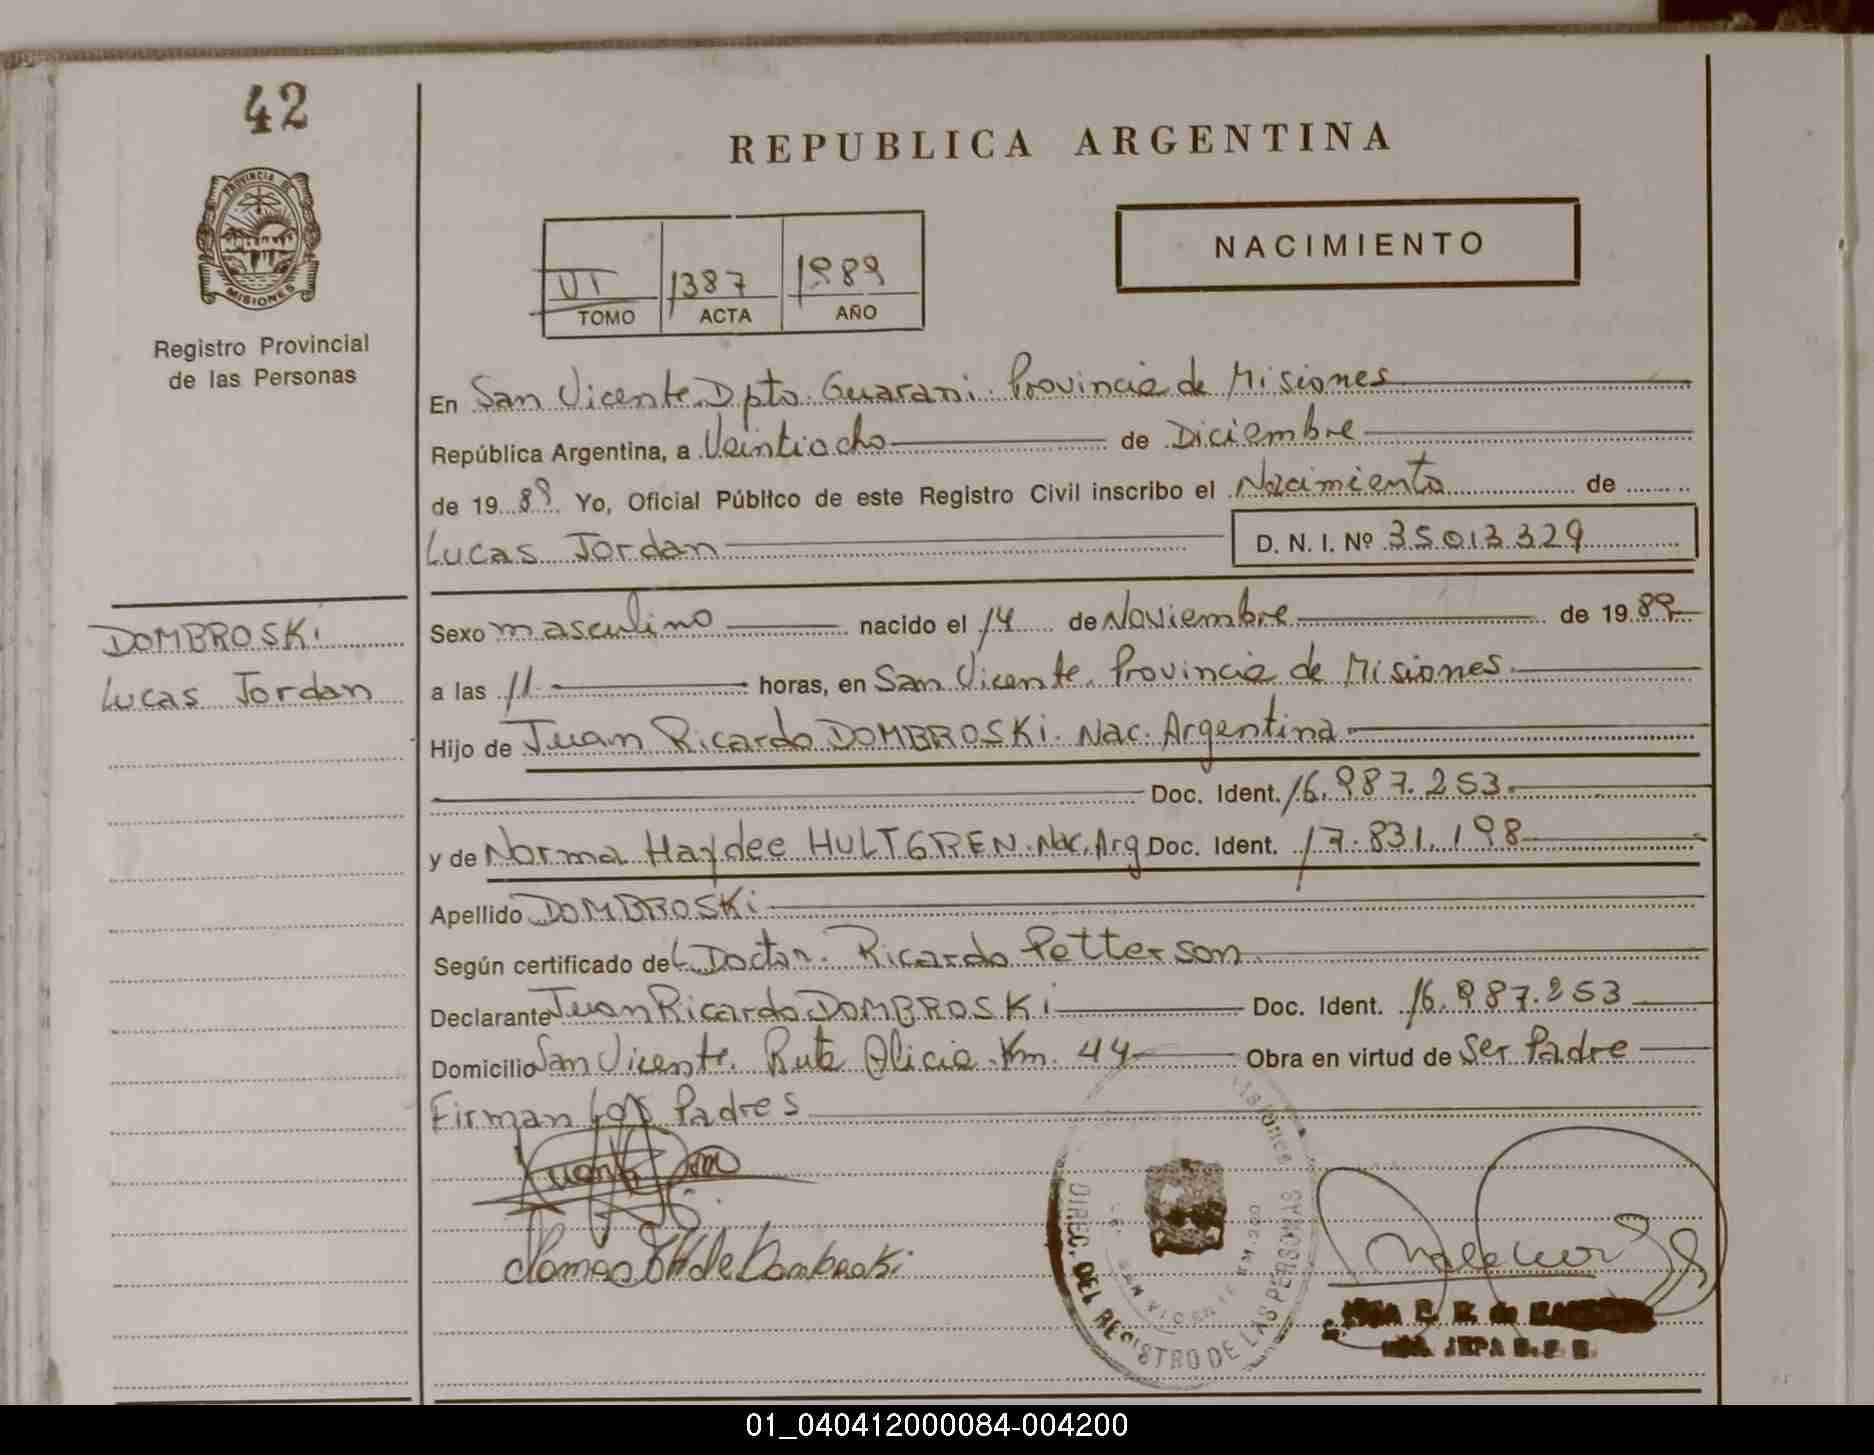 42
REPUBLICA ARGENTINA
PROVINCIA DE
MISIONES
Registro Provincial
de las Personas
VI 1387 1989
TOMO ACTA AÑO
NACIMIENTO
En San Vicente Dpto. Guarani. Provincia de Misiones
República Argentina, a Veintiocho de Diciembre
de 19 89 Yo, Oficial Público de este Registro Civil inscribo el Nacimiento de
Lucas Jordan D. N. I. Nº 35013329
DOMBROSKi
Lucas Jordan
Sexo masculino nacido el 14 de Noviembre de 19 89
a las 11 horas, en San Vicente. Provincia de Misiones
Hijo de Juan Ricardo DOMBROSKi. Nac. Argentina
Doc. Ident. 16.987.253
y de Norma Haydee HULTGREN. Nac. Arg Doc. Ident. 17.831.198
Apellido DOMBROSKi
Según certificado del Doctor. Ricardo Petterson
Declarante Juan Ricardo DOMBROSKi Doc. Ident. 16.987.253
Domicilio San Vicente. Ruta Alicia Km. 44 Obra en virtud de Ser Padre
Firman los Padres
DIREC. DEL REGISTRO DE LAS PERSONAS
SAN VICENTE
MISIONES
de Dombroski
JEFA
01_040412000084-004200